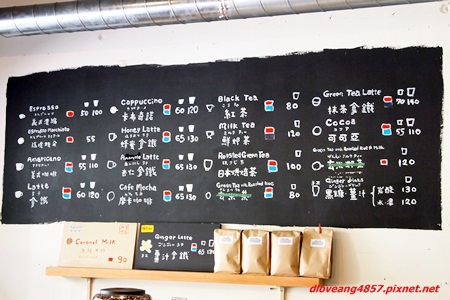 Espresso 50 100
Espresso Macchiato 55
Americano 55 115
美式咖啡
Latte 60 120
拿鐵
Cappuccino 60 120
卡布奇諾
Honey Latte 65 130
蜂蜜拿鐵
Latte 65 130
杏仁拿鐵
Cafe Mocha 65 130
摩卡咖啡
Black Tea 80
紅茶
Milk Tea 120
鮮奶茶
Roasted Green Tea 100
日本焙茶
Green Tea with Roasted Rice 80
Green Tea Latte 70 140
抹茶拿鐵
Cocoa 55 110
可可亞
Green Tea with Roasted Rice & Milk 120
Ginger drinks
黑糖薑汁 130
冰凍 120
Caramel Milk
90
Ginger Latte
薑汁拿鐵
dloveang4857.pixnet.net